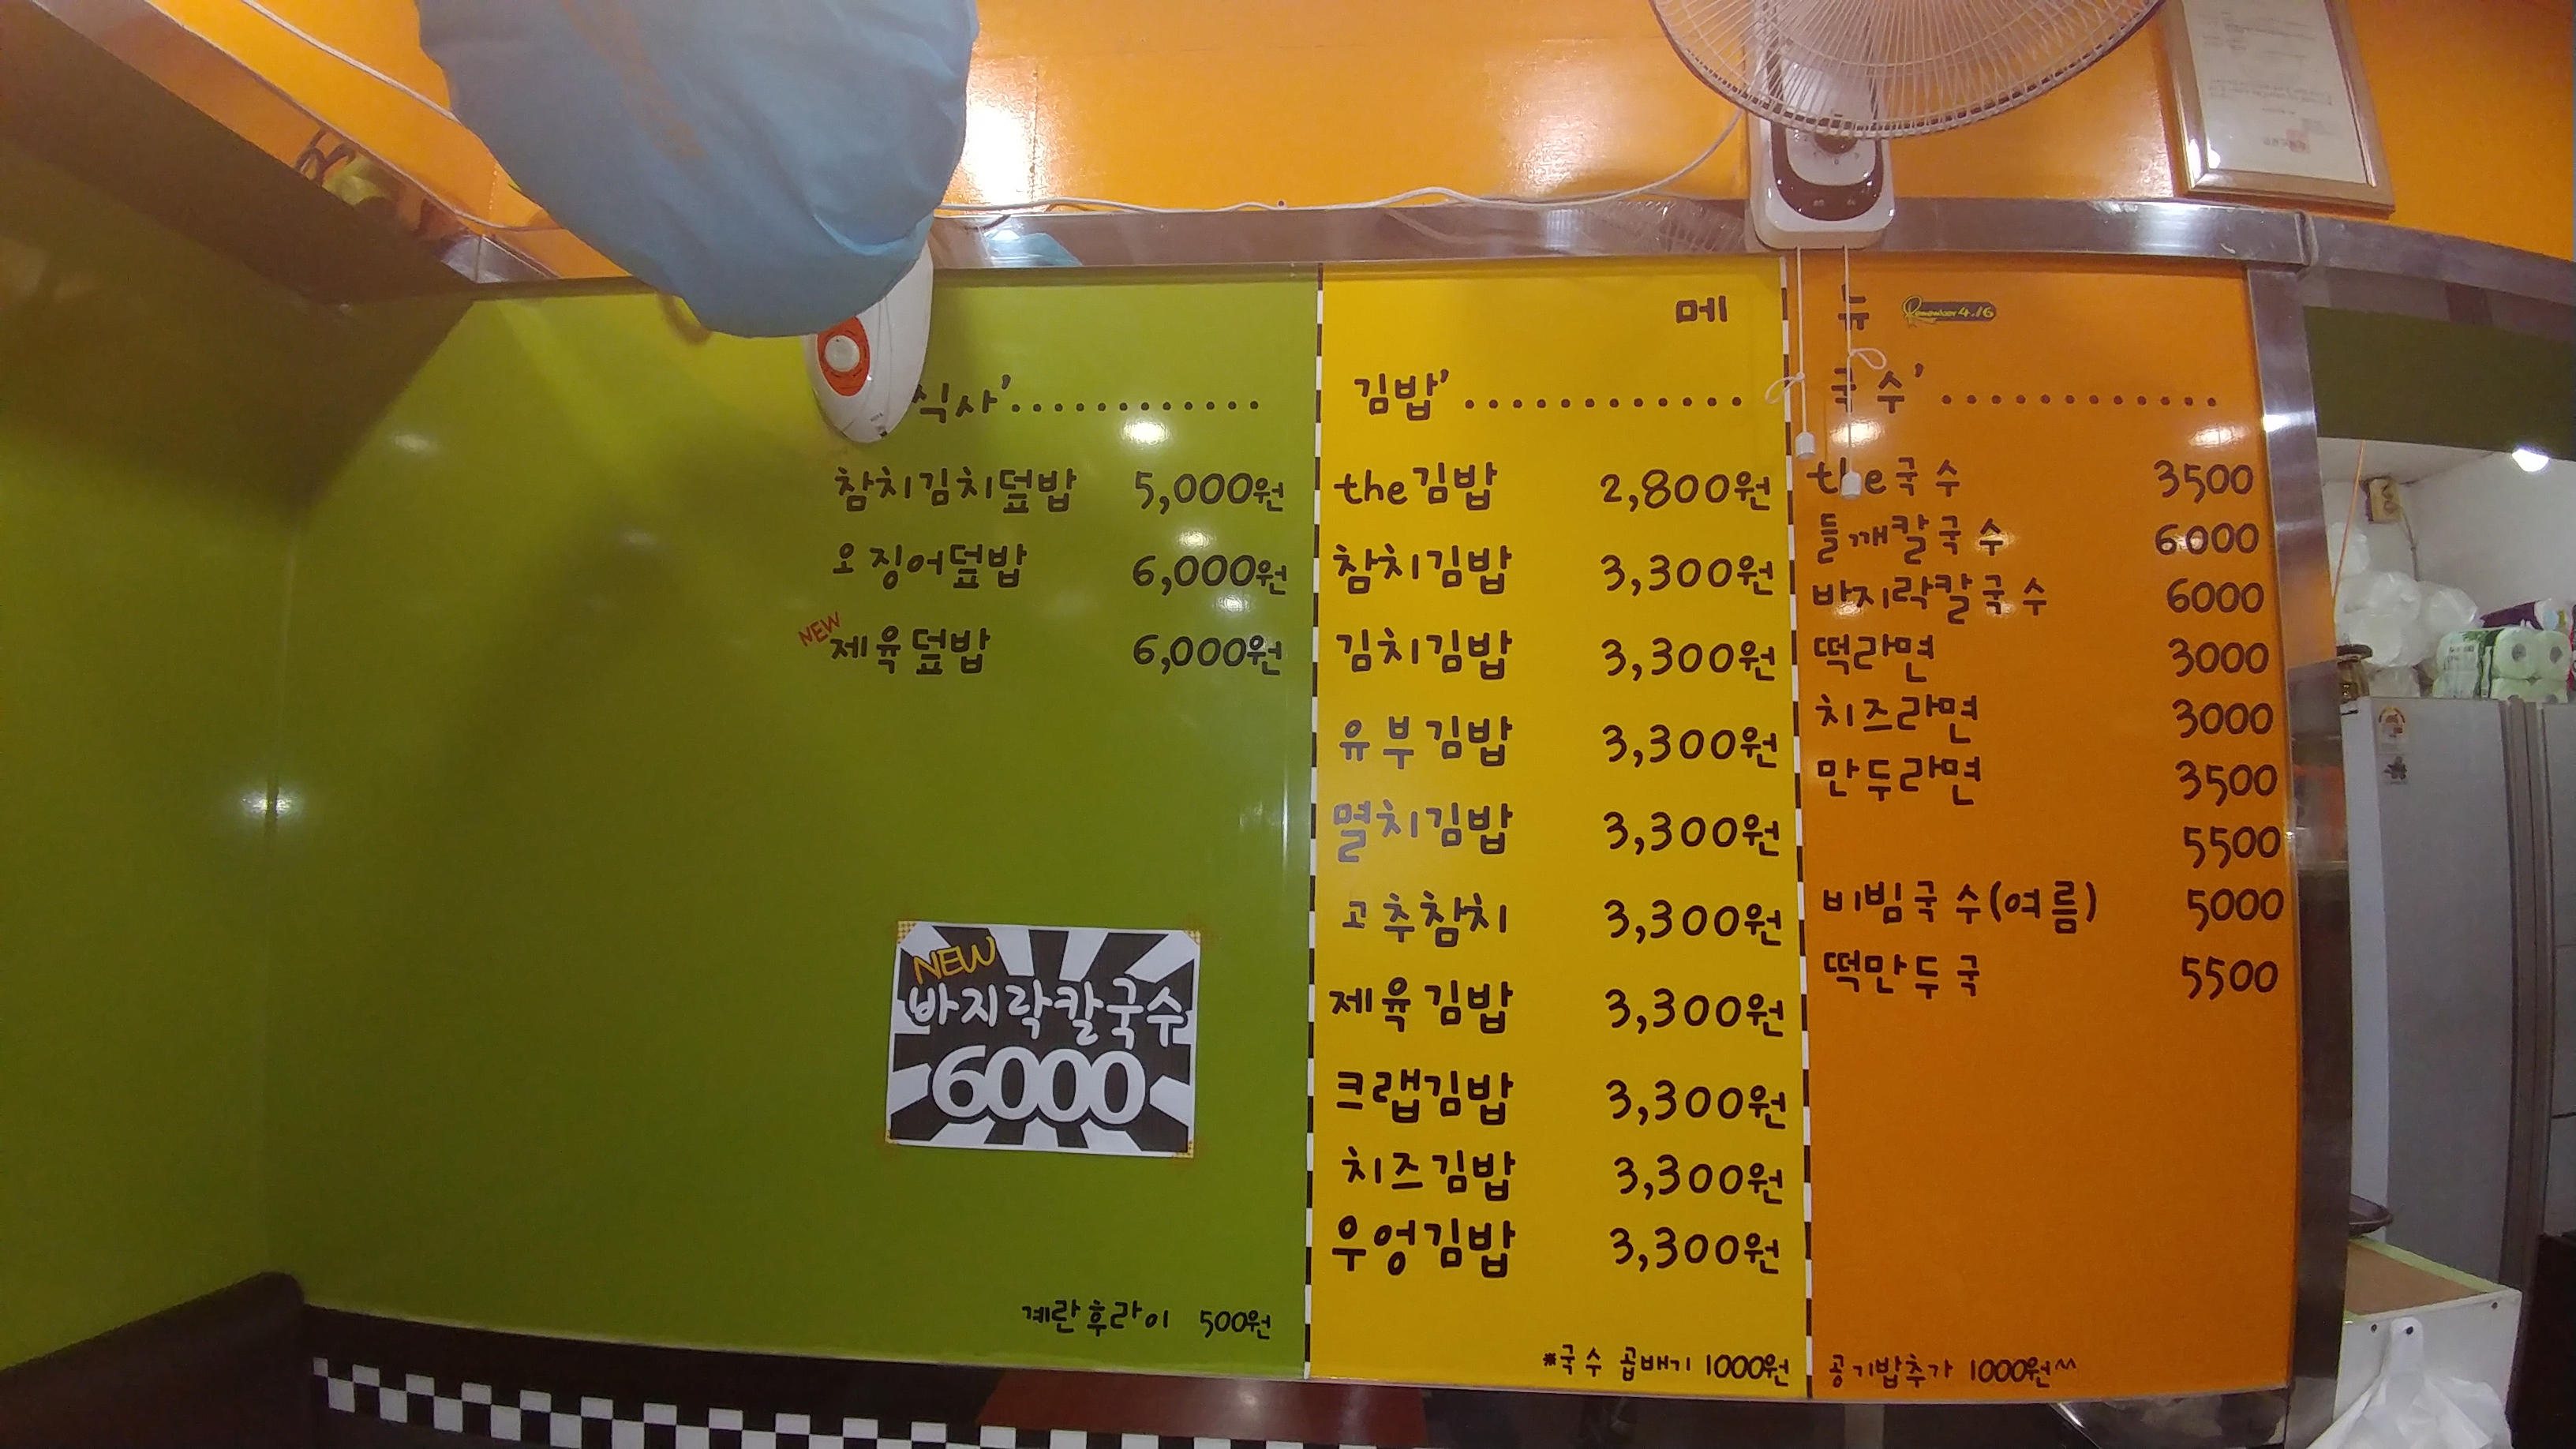 메 뉴 Remember 4.16
식사'............
참치김치덮밥 5,000원
오징어덮밥 6,000원
NEW 제육덮밥 6,000원
NEW
바지락칼국수
6000
계란후라이 500원
김밥'............
the김밥 2,800원
참치김밥 3,300원
김치김밥 3,300원
유부김밥 3,300원
멸치김밥 3,300원
고추참치 3,300원
제육김밥 3,300원
크랩김밥 3,300원
치즈김밥 3,300원
우엉김밥 3,300원
*국수 곱배기 1000원
국수'............
the국수 3500
들깨칼국수 6000
바지락칼국수 6000
떡라면 3000
치즈라면 3000
만두라면 3500
5500
비빔국수(여름) 5000
떡만두국 5500
공기밥추가 1000원^^